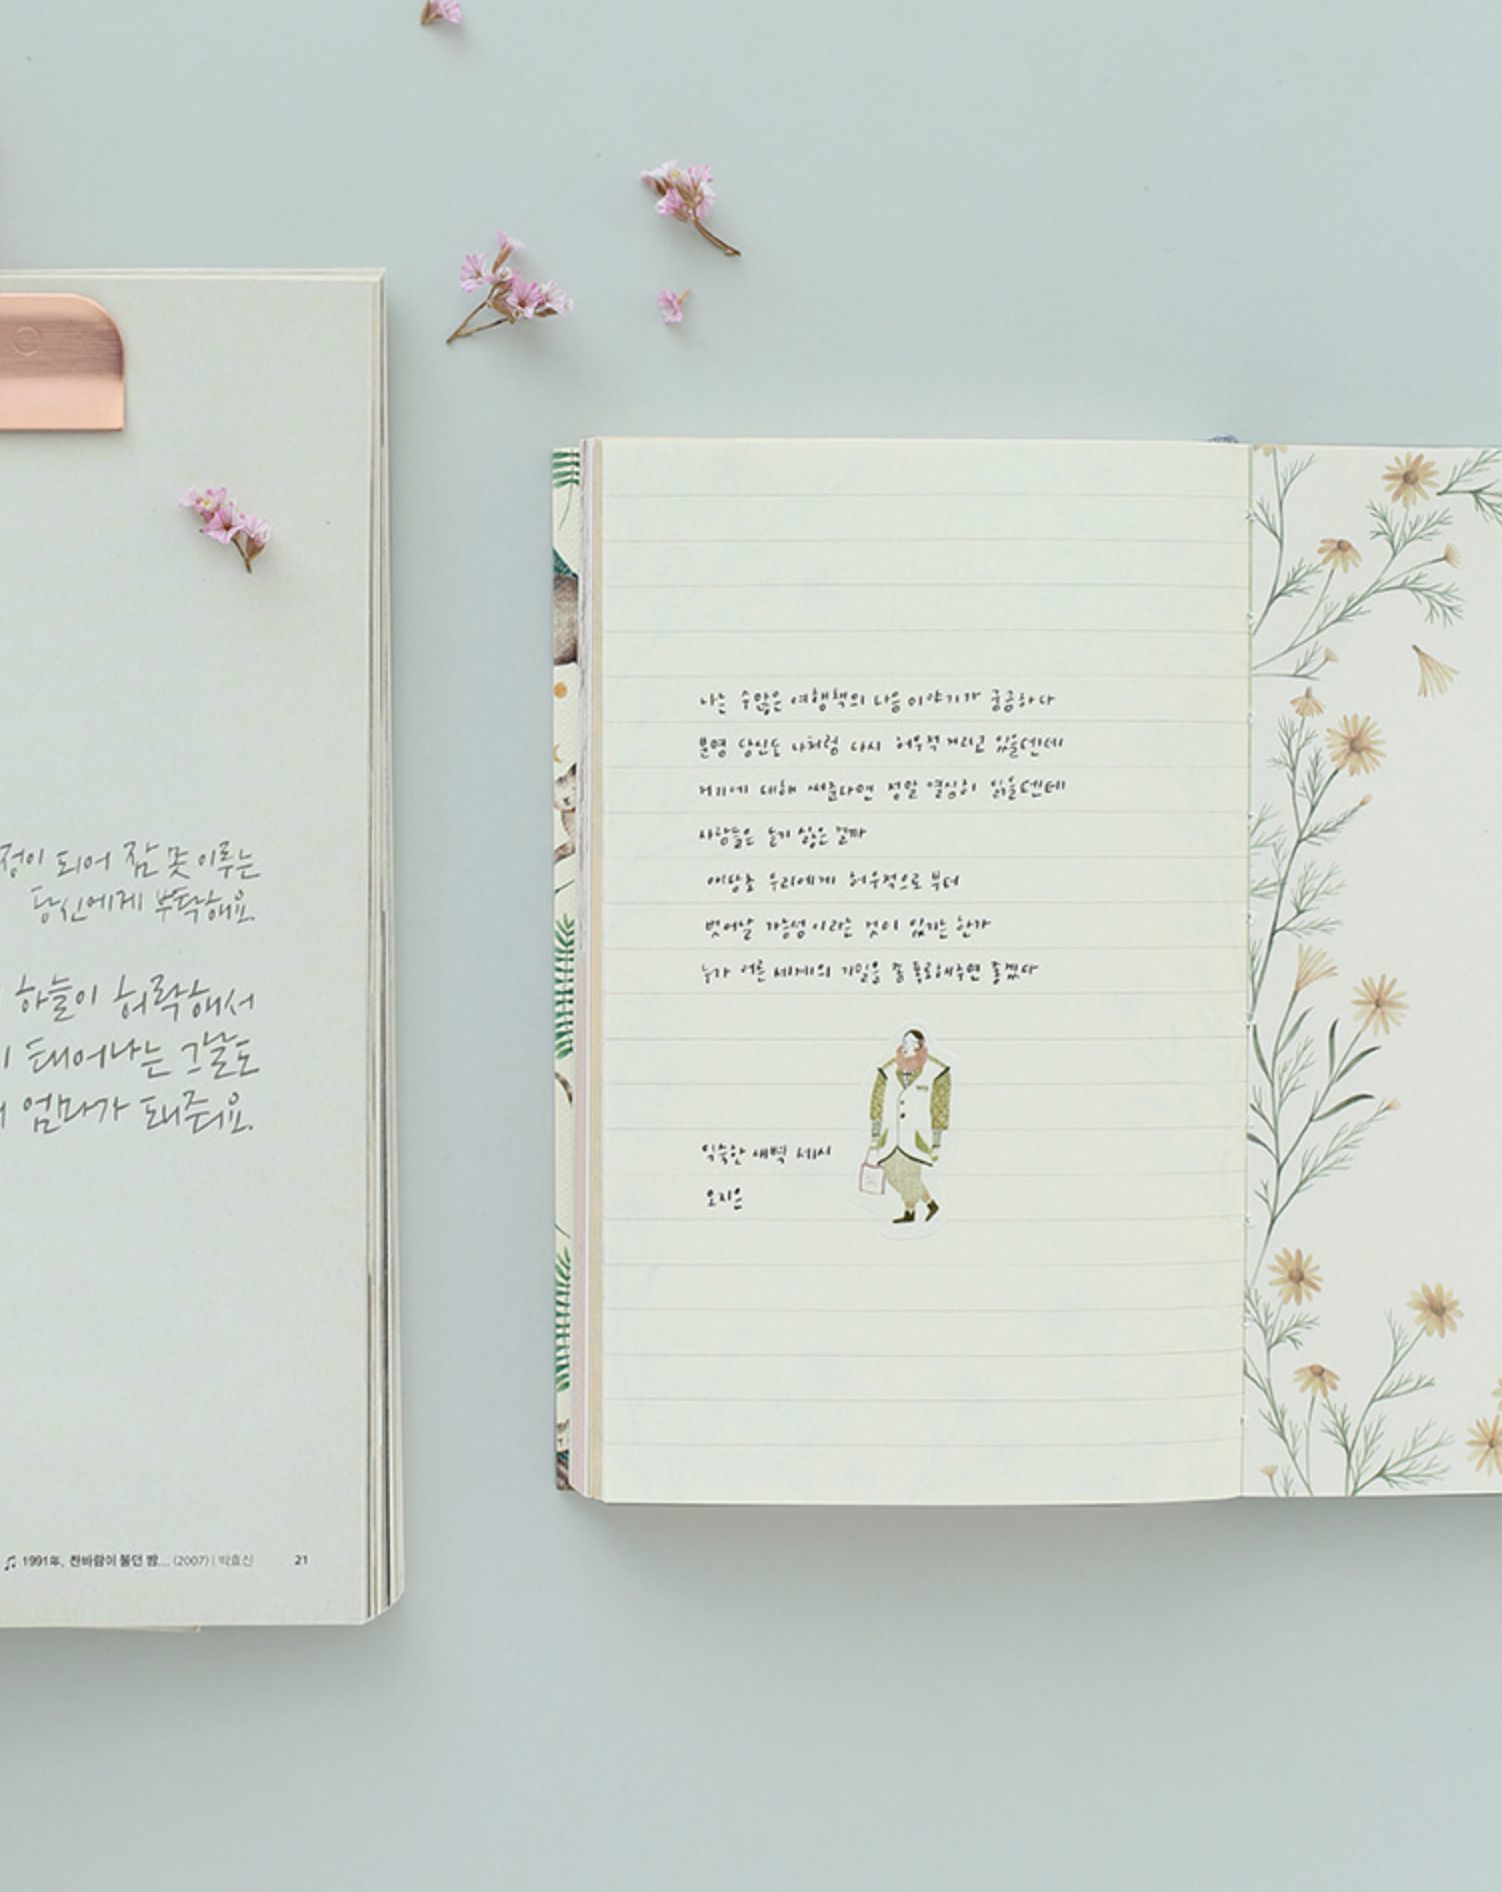 정이 되어 잠 못 이루는
당신에게 부탁해요.
하늘이 허락해서
태어나는 그날도
엄마가 돼줘요.
♫ 1991年, 찬바람이 불던 밤... (2007) | 박효신
21
나는 수많은 여행책의 다음 이야기가 궁금하다
분명 당신도 나처럼 다시 허우적거리고 있을텐데
거기에 대해 써준다면 정말 열심히 읽을텐데
사람들은 듣기 싫은 걸까
애당초 우리에게 허우적으로 부터
벗어날 가능성이라는 것이 있기는 한가
누가 어른 세계의 기밀을 좀 폭로해주면 좋겠다
익숙한 새벽 세시
오지은